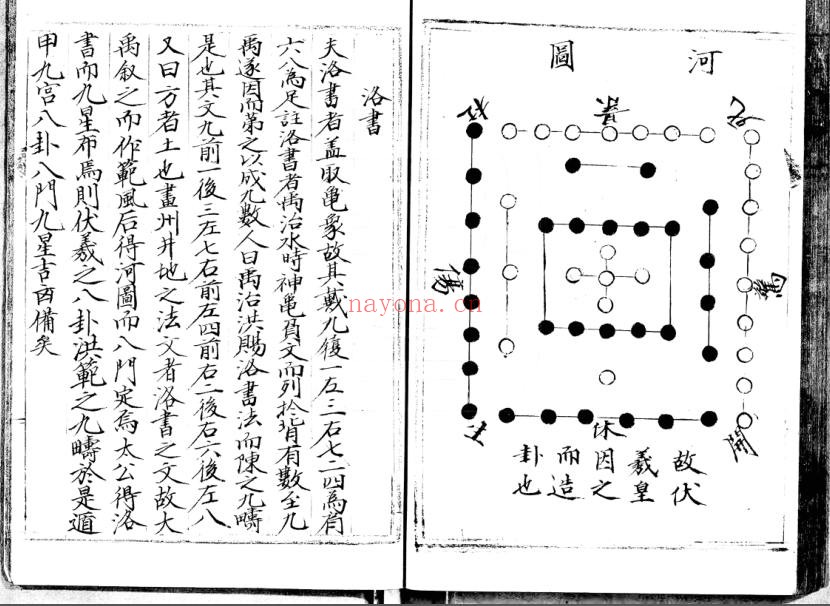 河圖
死
景
杜
驚
傷
開
休
生
故伏
羲皇
因之
而造
卦也
洛書
夫洛書者盖取龜象故其戴九復一左三右七二四為肩
六八為足註洛書者禹治水時神龜負文而列於背有數至九
禹遂因而第之以成九數人曰禹治洪賜洛書法而陳之九疇
是也其文九前一後三左七右前左四前右二後右六後左八
又曰方者土也畫州井地之法文者洛書之文故大
禹叙之而作範風后得河圖而八門定焉太公得洛
書而九星布焉則伏羲之八卦洪範之九疇於是遁
甲九宮八卦八門九星吉凶備矣
nayona.cn